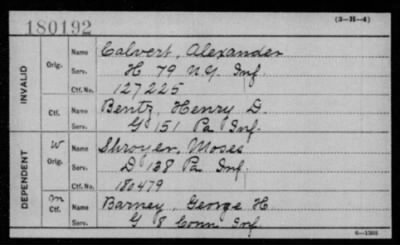 180192
(3-H-4)
INVALID
Orig.
Name Calvert, Alexander
Serv. H 79 N.Y. Inf.
Ctf. No. 127225
Ctf.
Name Bentz, Henry D.
Serv. G 151 Pa Inf.
DEPENDENT
W
Orig.
Name Shroyer, Moses
Serv. D 138 Pa Inf.
Ctf. No. 180479
Ctf.
Name Barney, George H
Serv. G 8 Conn Inf.